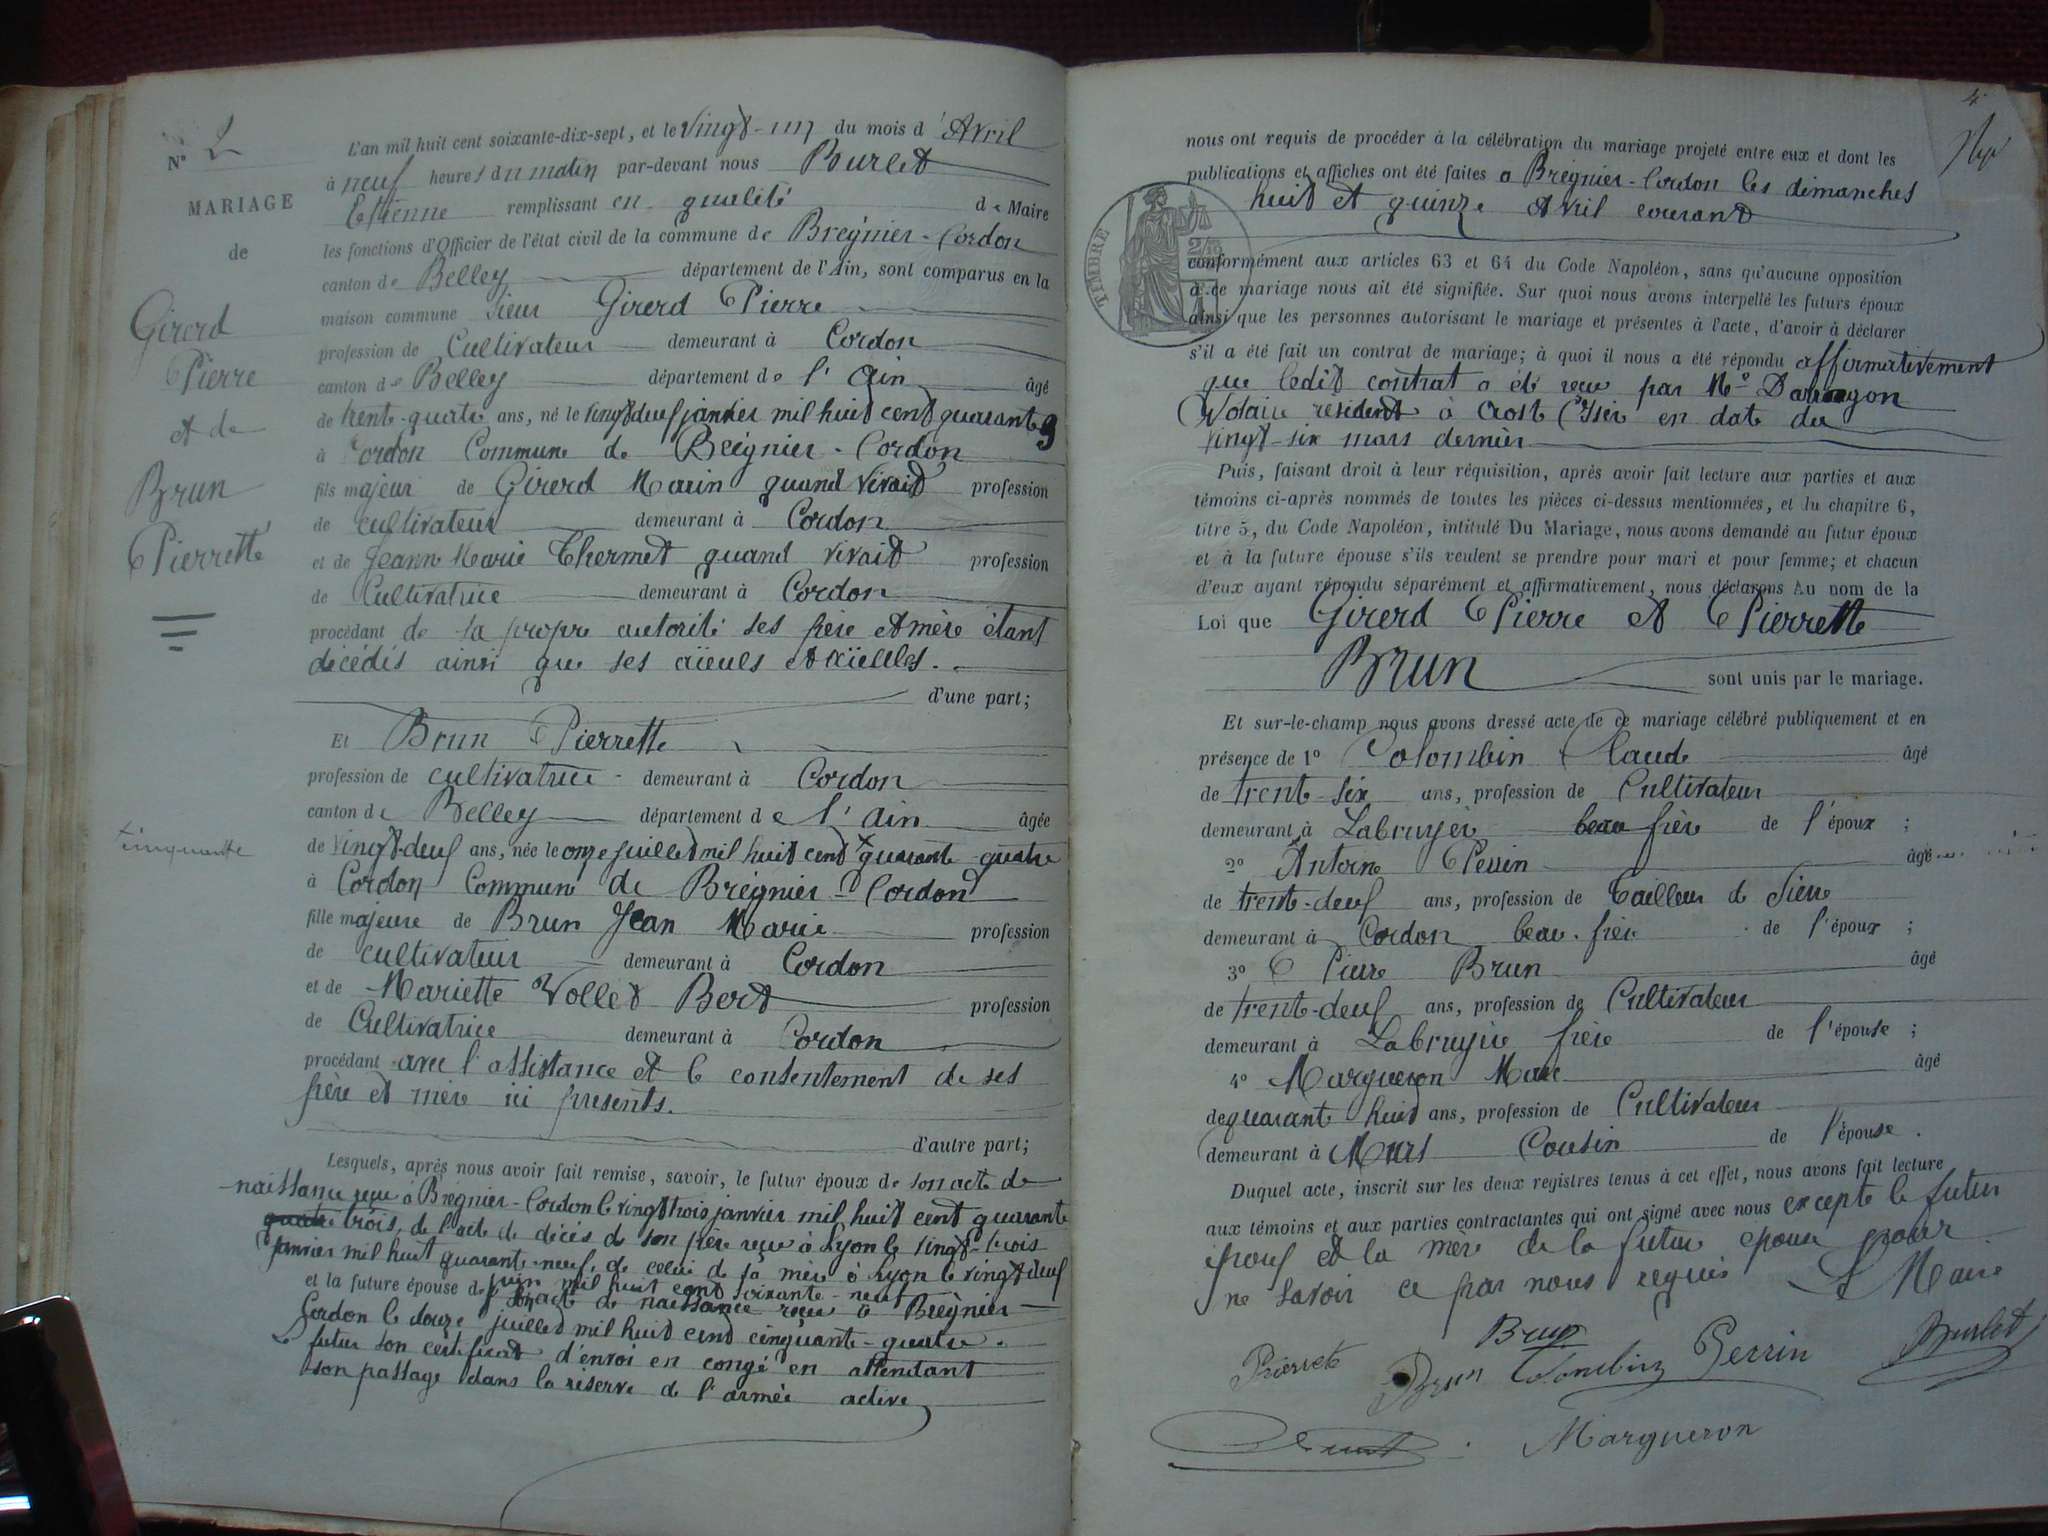 N° 2
MARIAGE
de
Girerd
Pierre
et de
Brun
Pierrette
L'an mil huit cent soixante-dix-sept, et le vingt-un du mois d'Avril
à neuf heures du matin par-devant nous Burlet
Etienne remplissant en qualité de Maire
les fonctions d'Officier de l'état civil de la commune de Brégnier-Cordon
canton de Belley département de l'Ain, sont comparus en la
maison commune sieur Girerd Pierre
profession de Cultivateur demeurant à Cordon
canton de Belley département de l'Ain âgé
de trente-quatre ans, né le vingt deux janvier mil huit cent quarante 3
à Cordon Commune de Brégnier-Cordon
fils majeur de Girerd Marin quand vivait profession
de cultivateur demeurant à Cordon
et de Jeann Marie Thermet quand vivait profession
de Cultivatrice demeurant à Cordon
procédant de sa propre autorité ses père et mère étant
décédés ainsi que ses aïeuls et aïeulles.
d'une part;
Et Brun Pierrette
profession de cultivatrice demeurant à Cordon
canton de Belley département de l'Ain âgée
cinquante
de vingt-deux ans, née le onze juillet mil huit cent quarante quatre
à Cordon Commune de Brégnier-Cordon
fille majeure de Brun Jean Marie profession
de cultivateur demeurant à Cordon
et de Mariette Vollet Bert profession
de Cultivatrice demeurant à Cordon
procédant avec l'assistance et le consentement de ses
père et mère ici présents.
d'autre part;
Lesquels, après nous avoir fait remise, savoir, le futur époux de son acte de
naissance reçu à Brégnier-Cordon le vingt trois janvier mil huit cent quarante
trois, de l'acte de décès de son père reçu à Lyon le vingt-trois
janvier mil huit quarante-neuf, de celui de sa mère à Lyon le vingt deux
juin mil huit cent soixante-neuf
et la future épouse de son acte de naissance reçu à Brégnier
Cordon le douze juillet mil huit cent cinquante-quatre.
Le futur son certificat d'envoi en congé en attendant
son passage dans la réserve de l'armée active
4
nous ont requis de procéder à la célébration du mariage projeté entre eux et dont les
publications et affiches ont été faites à Brégnier-Cordon les dimanches
huit et quinze Avril courant
TIMBRE
conformément aux articles 63 et 64 du Code Napoléon, sans qu'aucune opposition
à ce mariage nous ait été signifiée. Sur quoi nous avons interpellé les futurs époux
ainsi que les personnes autorisant le mariage et présentes à l'acte, d'avoir à déclarer
s'il a été fait un contrat de mariage; à quoi il nous a été répondu affirmativement
que ledit contrat a été reçu par Me
Notaire résident à Aoste Isère en date du
vingt-six mars dernier
Puis, faisant droit à leur réquisition, après avoir fait lecture aux parties et aux
témoins ci-après nommés de toutes les pièces ci-dessus mentionnées, et du chapitre 6,
titre 5, du Code Napoléon, intitulé Du Mariage, nous avons demandé au futur époux
et à la future épouse s'ils veulent se prendre pour mari et pour femme; et chacun
d'eux ayant répondu séparément et affirmativement, nous déclarons Au nom de la
Loi que Girerd Pierre et Pierrette
Brun sont unis par le mariage.
Et sur-le-champ nous avons dressé acte de ce mariage célébré publiquement et en
présence de 1° Colombin Claude âgé
de trente-six ans, profession de Cultivateur
demeurant à Labruyèr beau frère de l'époux;
2° Antoine Perrin âgé
de trente-deux ans, profession de Tailleur de Pierre
demeurant à Cordon beau-frère de l'époux;
3° Pierre Brun âgé
de trente-deux ans, profession de Cultivateur
demeurant à Labruyère frère de l'épouse;
4° Margueron Marc âgé
de quarante huit ans, profession de Cultivateur
demeurant à Murs Cousin de l'épouse.
Duquel acte, inscrit sur les deux registres tenus à cet effet, nous avons fait lecture
aux témoins et aux parties contractantes qui ont signé avec nous excepté le futur
époux et la mère de la future épouse pour
ne savoir ce par nous requis Le Maire
Pierrete Brun
Brun Colombin Perrin Burlet
Margueron